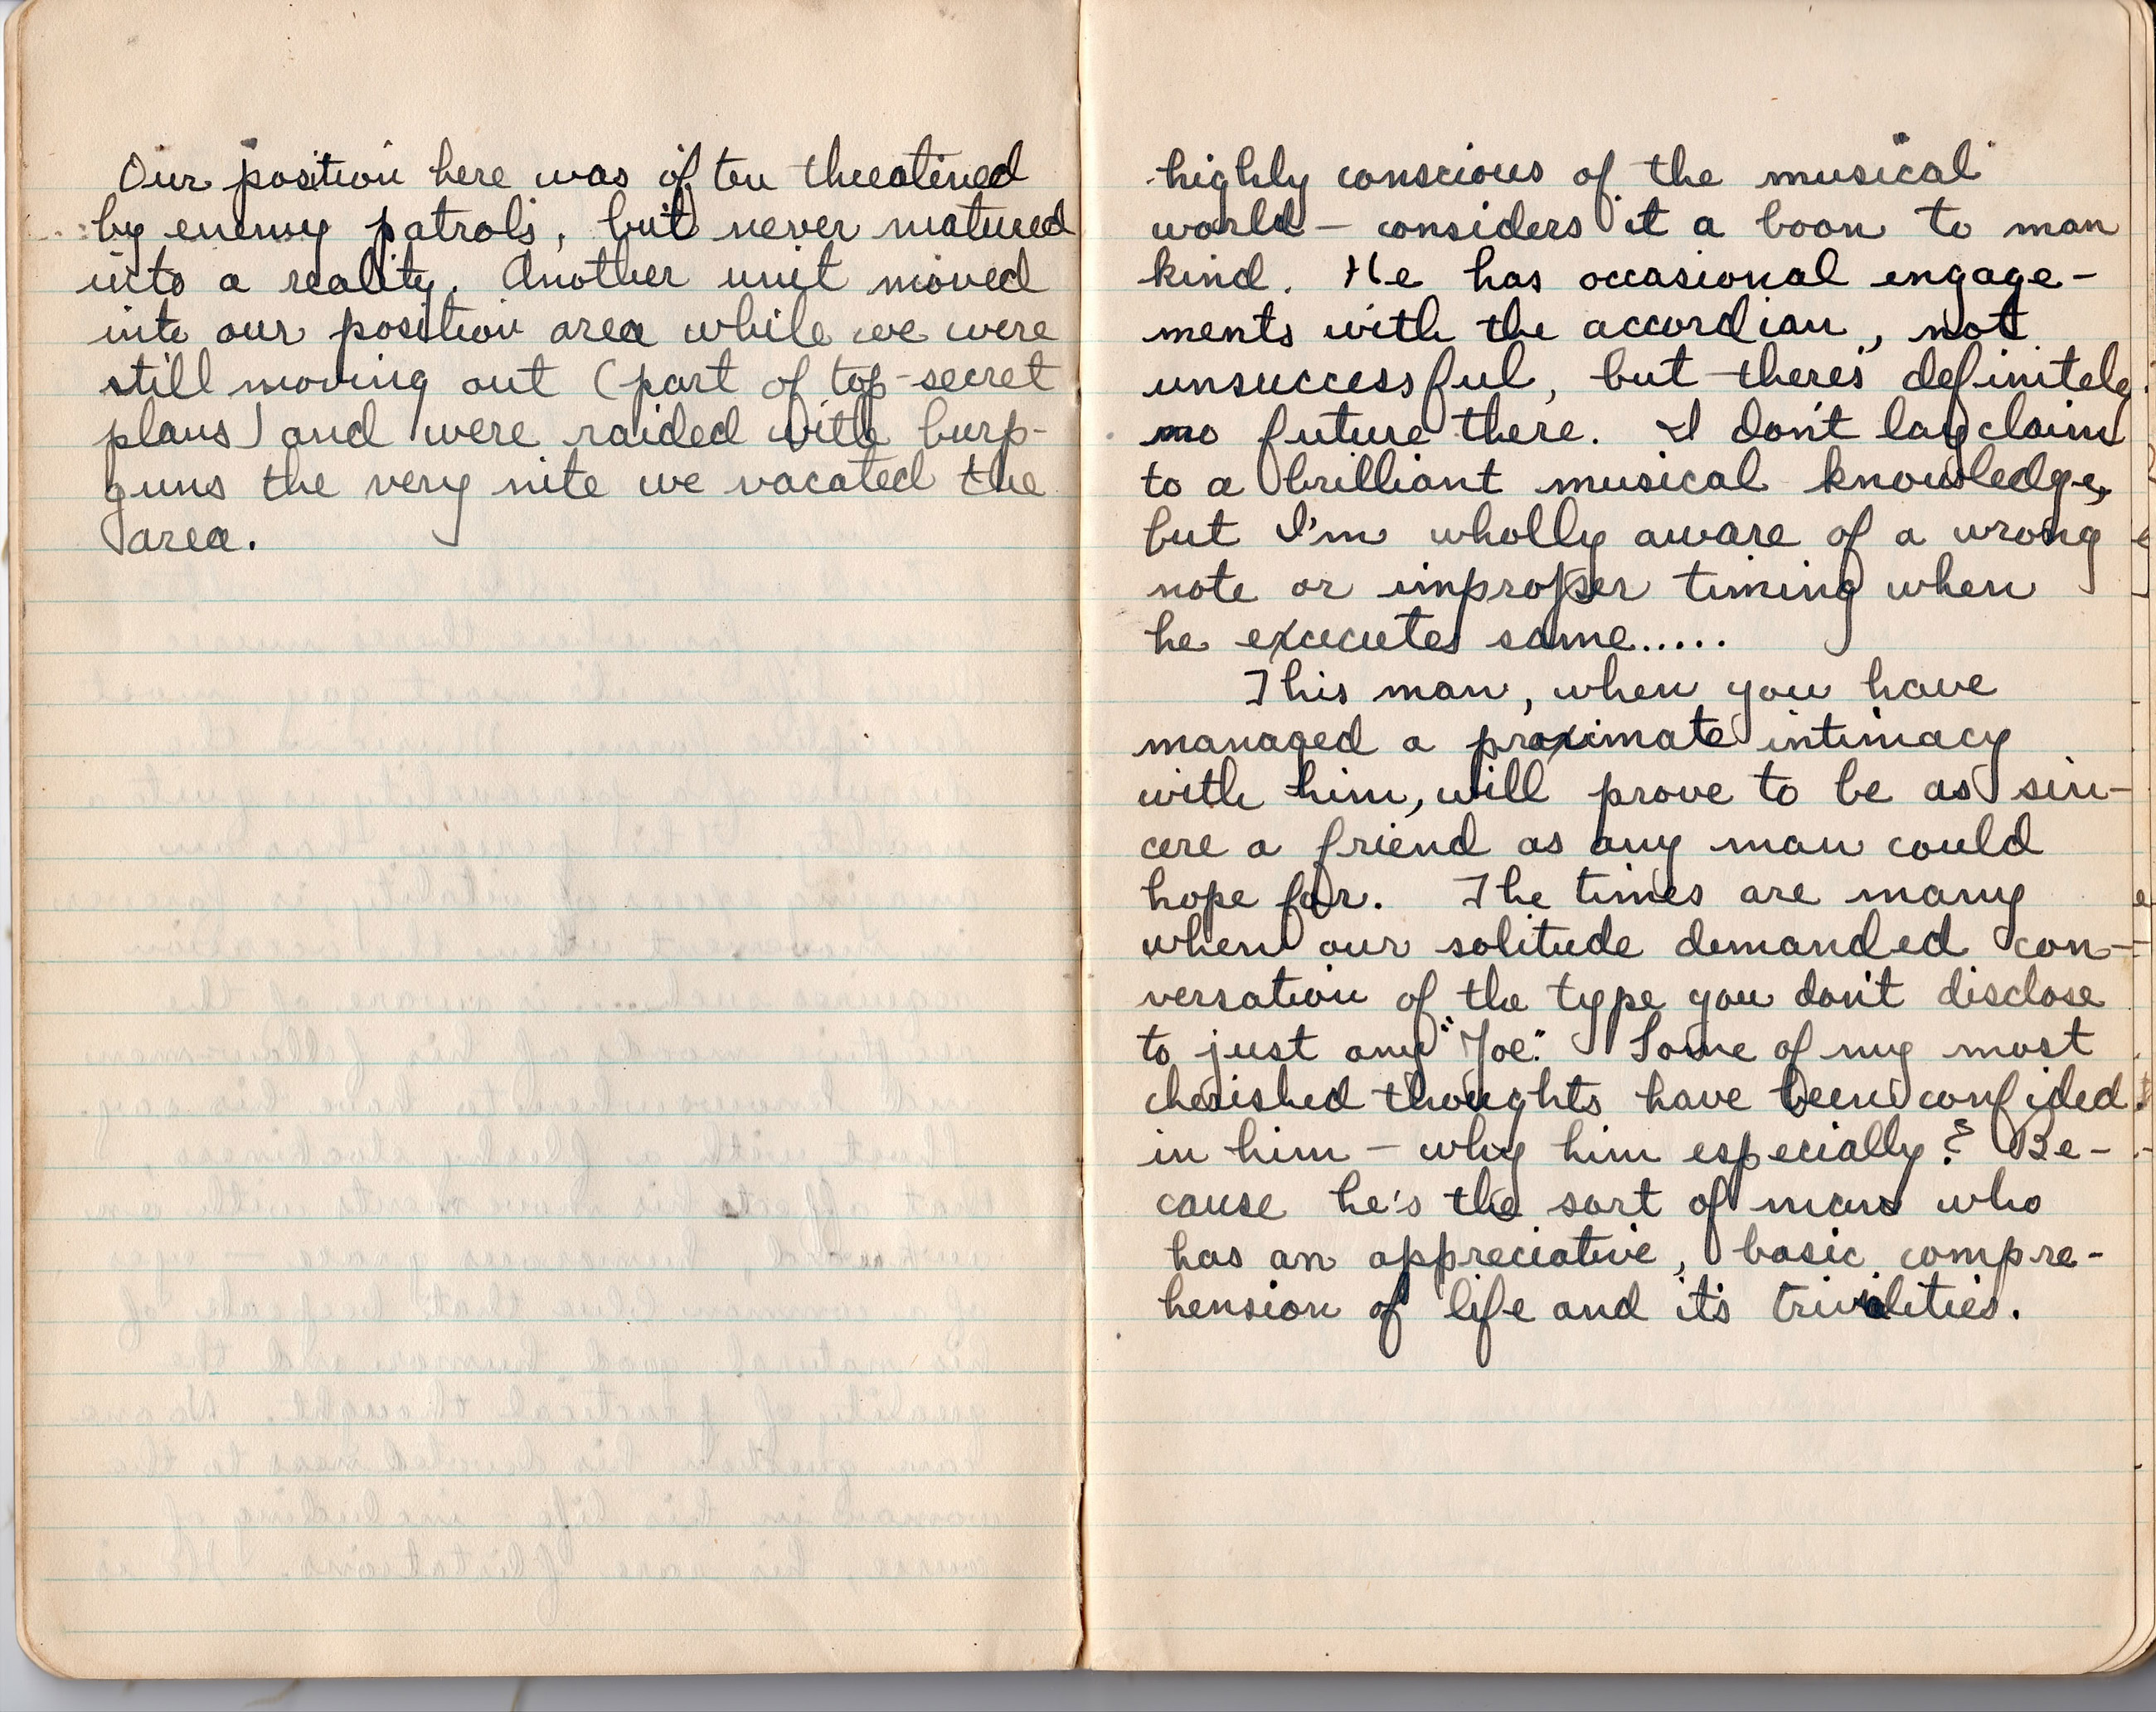 Our position here was often threatened
by enemy patrols, but never matured
into a reality. Another unit moved
into our position area while we were
still moving out (part of top-secret
plans) and were raided with burp-
guns the very nite we vacated the
area.
highly conscious of the musical
world – considers it a boon to man
kind. He has occasional engage-
ments with the accordian, not
unsuccessful, but there's definitely
no future there. I don't lay claim
to a brilliant musical knowledge,
but I'm wholly aware of a wrong
note or improper timing when
he executes same.....
This man, when you have
managed a proximate intimacy
with him, will prove to be as sin-
cere a friend as any man could
hope for. The times are many
when our solitude demanded con-
versation of the type you don't disclose
to just any "Joe." Some of my most
cherished thoughts have been confided
in him – why him especially? Be-
cause he's the sort of man who
has an appreciative, basic compre-
hension of life and it's trivialities.